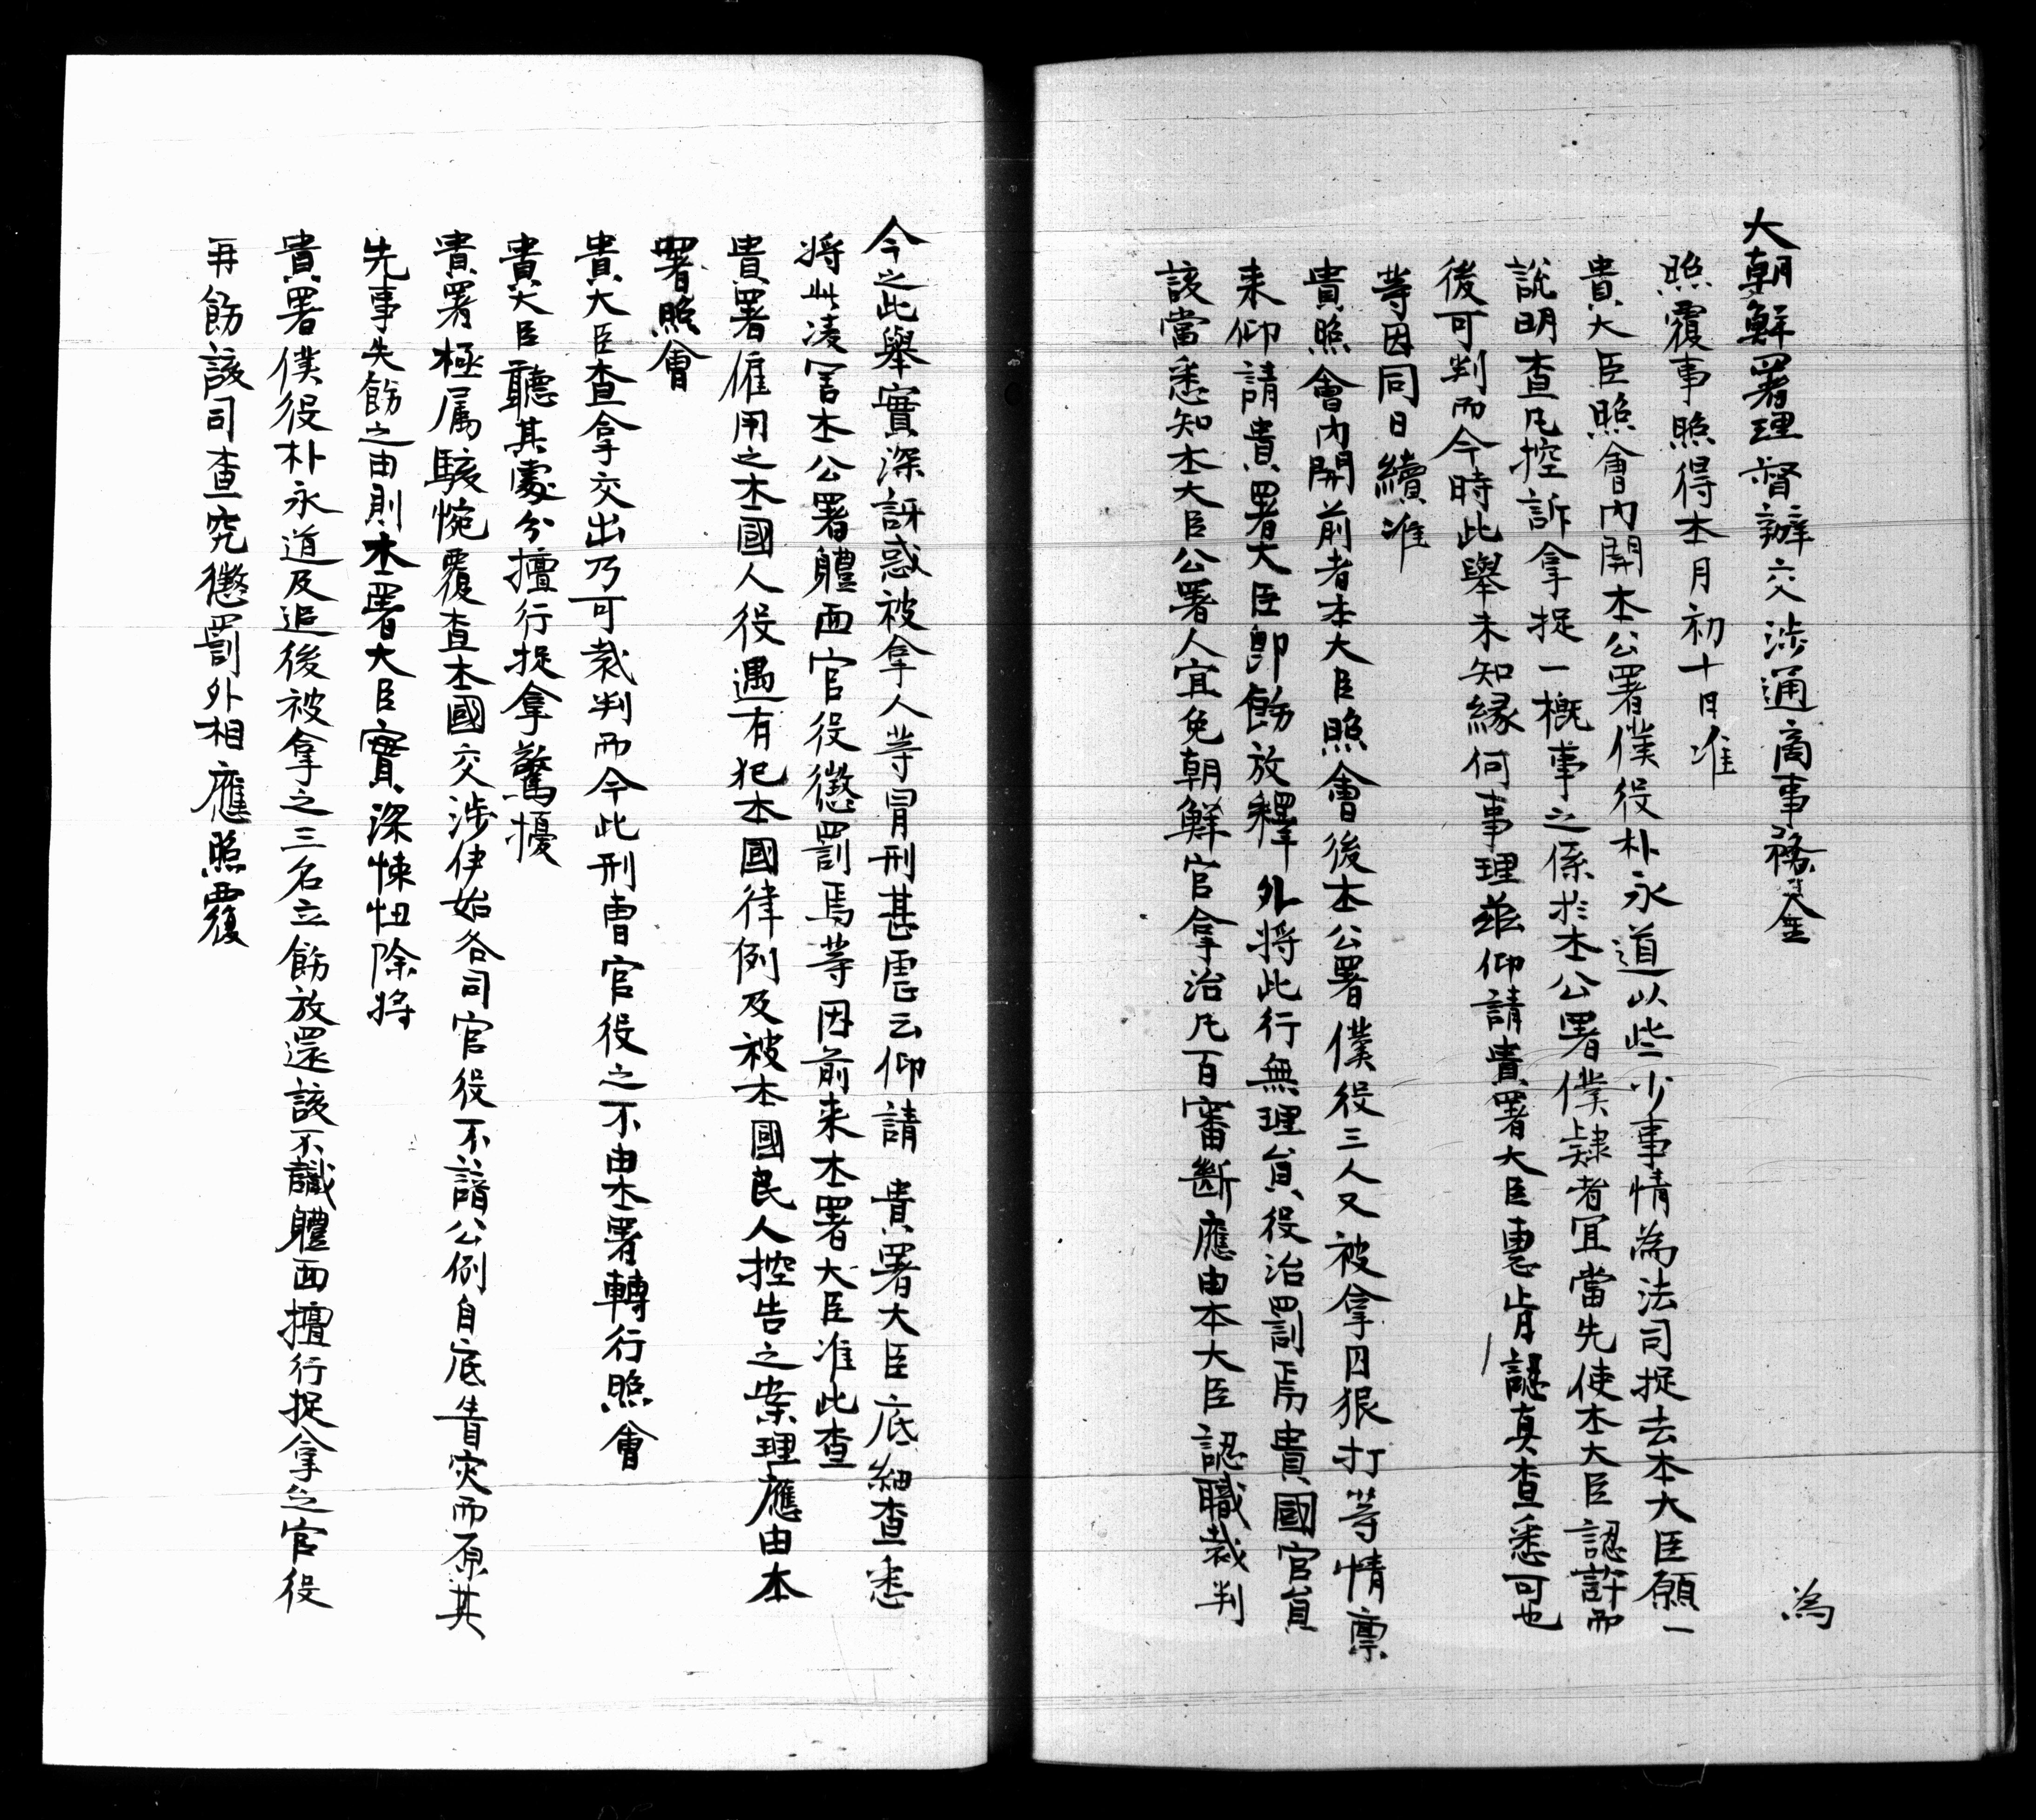 大朝鮮署理督辦交涉通商事務金 為
照覆事照得本月初十日准
貴大臣照會內開本公署僕役朴永道以些少事情為法司捉去本大臣願一
說明查凡控訴拿捉一概事之係於本公署僕隷者宜當先使本大臣認許而
後可判而今時此舉未知緣何事理玆仰請貴署大臣惠肯認真查悉可也
等因同日續准
貴照會內開前者本大臣照會後本公署僕役三人又被拿囚狠打等情禀
来仰請貴署大臣卽飭放釋外將此行無理員役治罰焉貴國官員
該當悉知本大臣公署人宜免朝鮮官拿治凡百審斷應由本大臣認職裁判
今之此舉實深訝惑被拿人等冒刑甚虐云仰請 貴署大臣底細查悉
將此凌害本公署體面官役懲罰焉等因前来本署大臣准此查
貴署僱用之本國人役遇有犯本國律例及被本國民人控告之案理應由本
署照會
貴大臣查拿交出乃可裁判而今此刑曹官役之不由本署轉行照會
貴大臣聽其處分擅行捉拿驚擾
貴署極属駭惋覆查本國交涉伊始各司官役不諳公例自底眚灾而原其
先事失飭之由則本署大臣實深悚忸除將
貴署僕役朴永道及追後被拿之三名立飭放還該不識體面擅行捉拿之官役
再飭該司查究懲罰外相應照覆